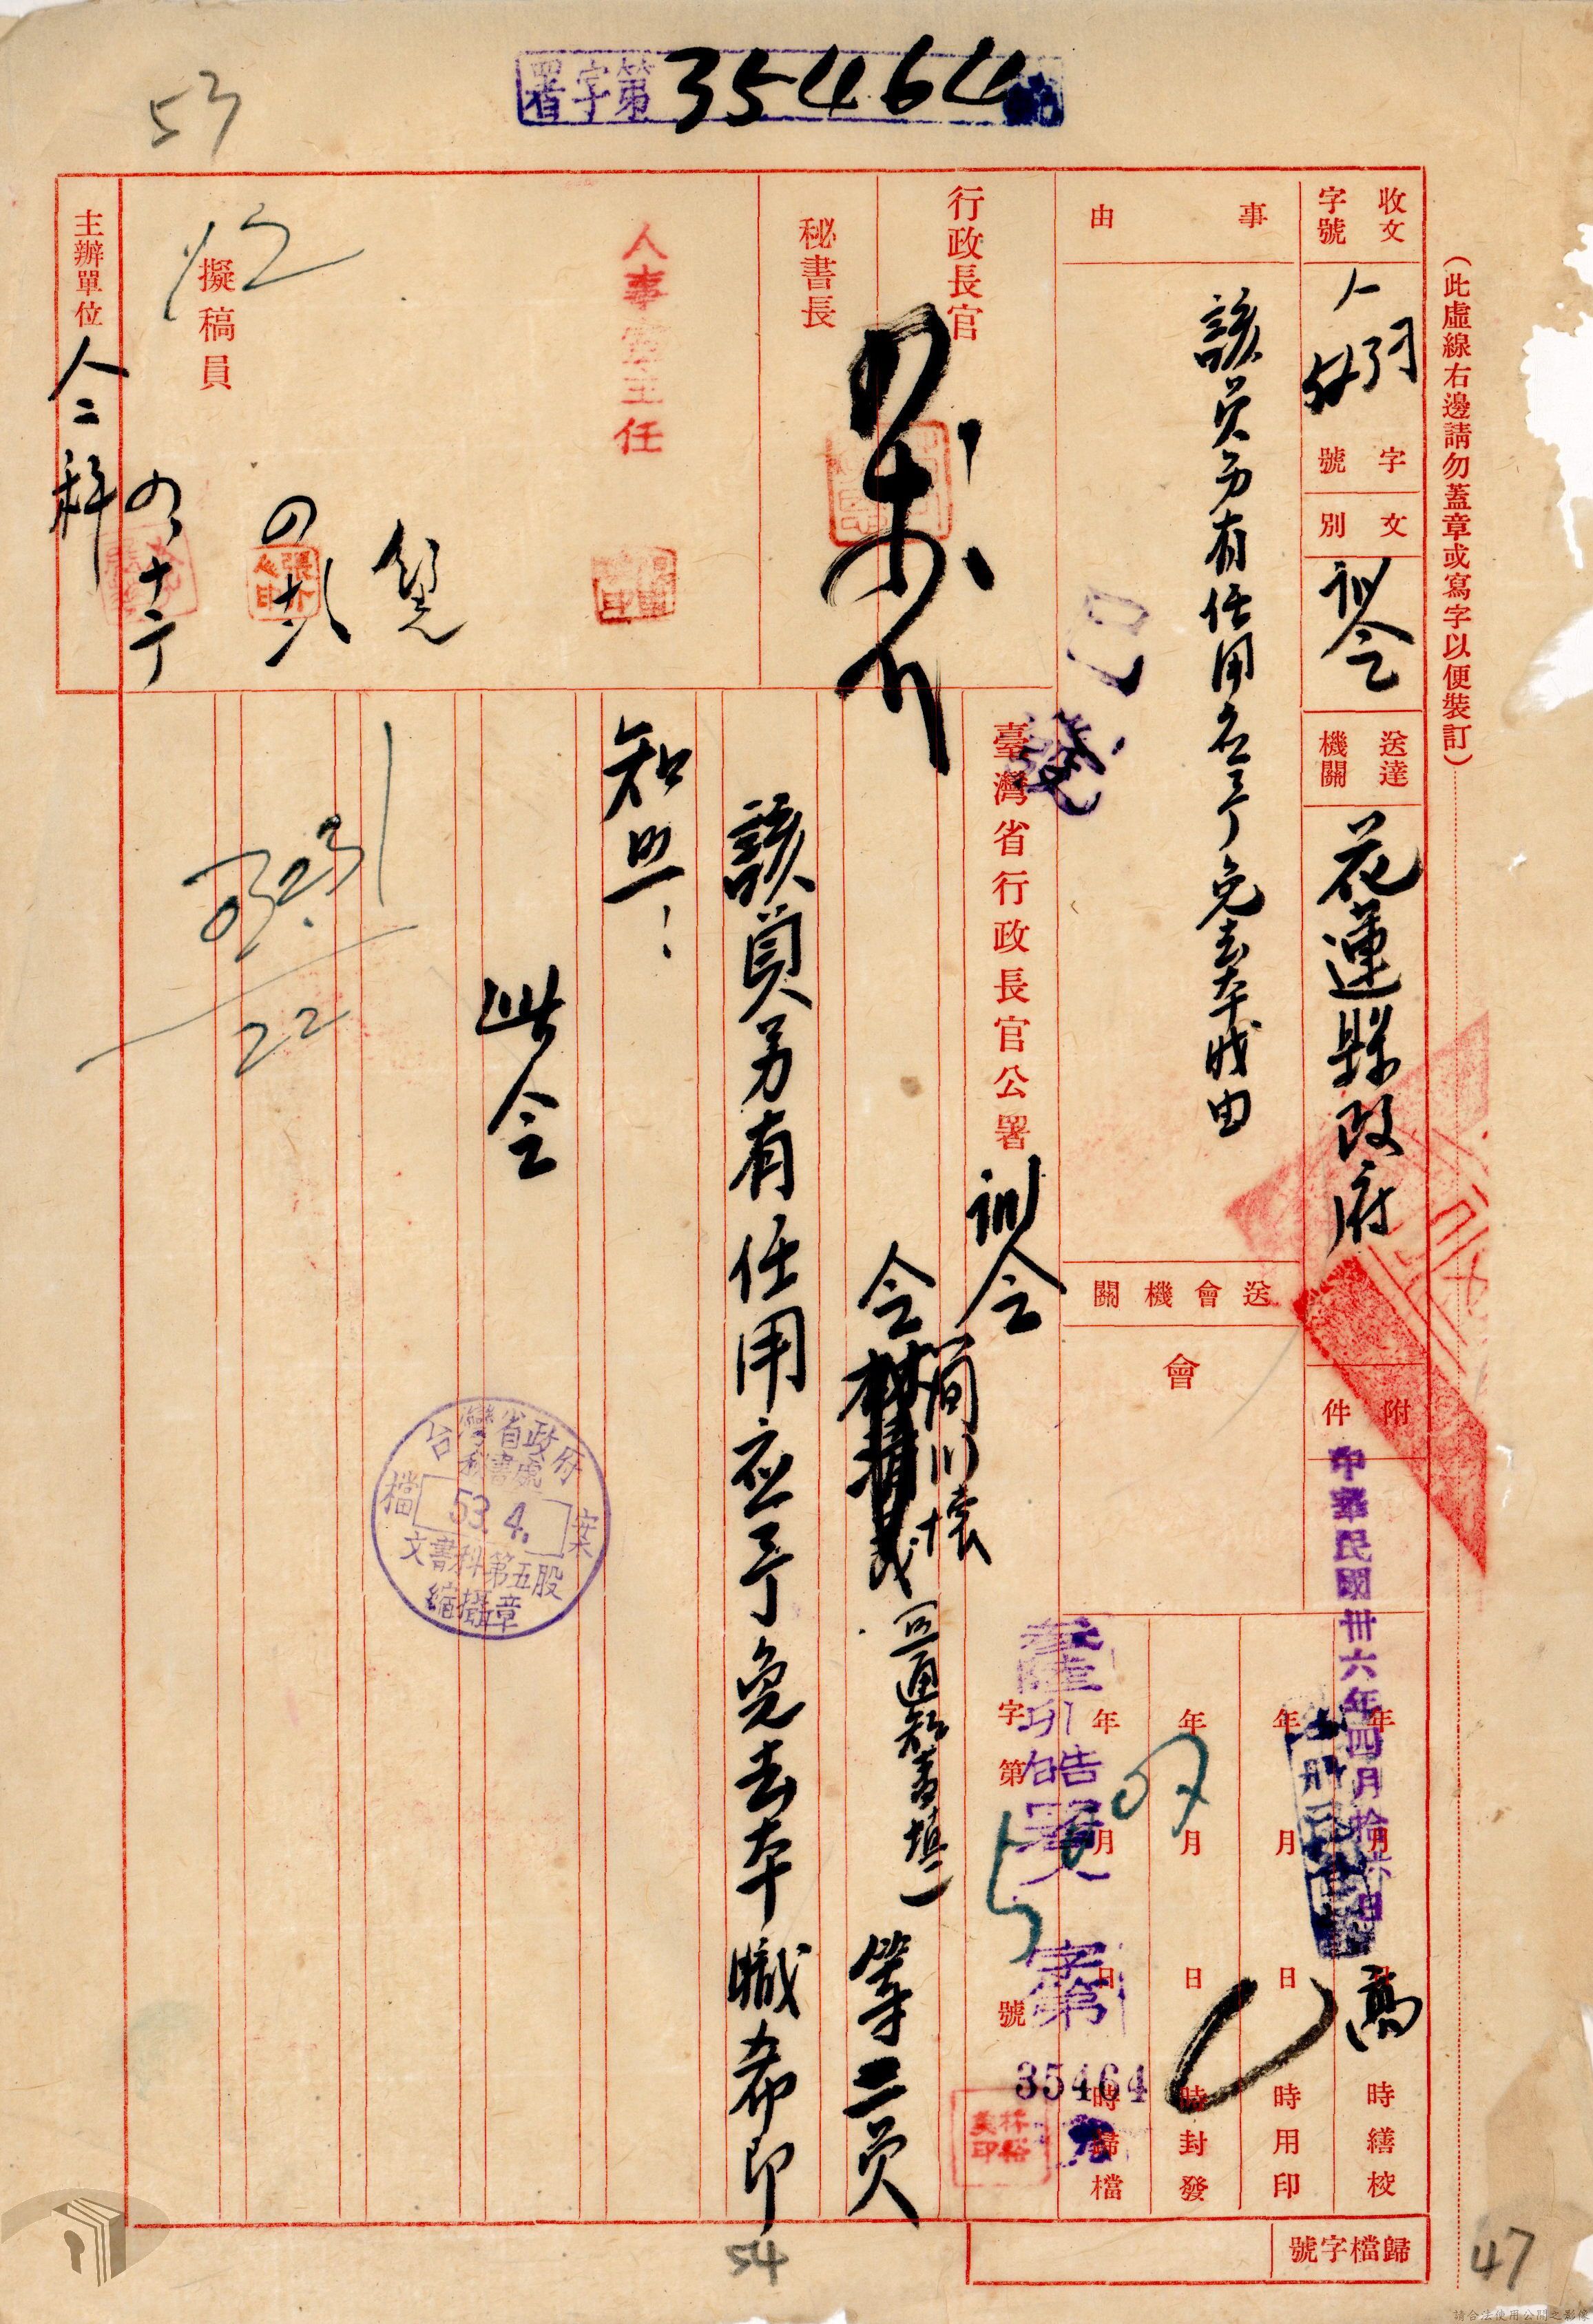 署字第35464號
53
（此虛線右邊請勿蓋章或寫字以便裝訂）
收文字號
人
字號
文別
訓令
送達機關
花蓮縣政府
附件
事由
該員另有任用應予免去本職由
已發
送會機關
會
中華民國卅六年四月拾六日
年月日時繕校
高
年月日時用印
年月日時封發
年月日時歸檔
行政長官
秘書長
人事室主任
擬稿員
主辦單位
人二科
臺灣省行政長官公署訓令
字第
號
署人字第
35464
令
簡川
等二員
該員另有任用應予免去本職希即
知照！
此令
台灣省政府
秘書處
檔案
53.4.
文書科第五股
縮攝章
22
歸檔字號
54
47
請合法使用公開之影像